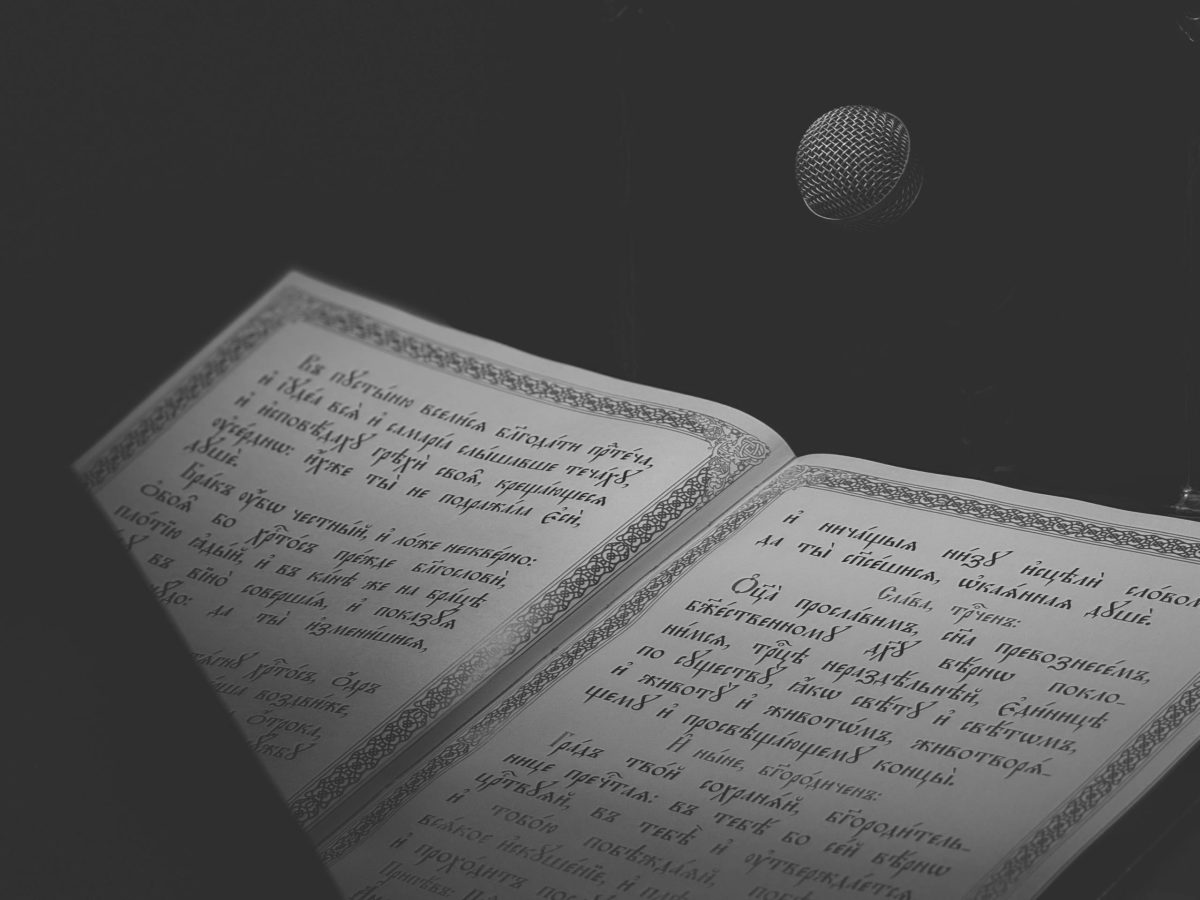 Въ пꙋсты́ню всели́сѧ блг҃ода́ти прⷣте́ча,
и҆ і҆ꙋде́а всѧ̀ и҆ самарі́а слы́шавше теча́хꙋ,
и҆ и҆сповѣ́дахꙋ грѣхѝ своѧ̑, креща́ющесѧ
ᲂу҆се́рднѡ: и҆́хже ты̀ не подража́ла є҆сѝ,
дꙋшѐ.
Бра́къ ᲂу҆́бѡ честны́й, и҆ ло́же нескве́рно:
Ѻ҆боѧ̑ бо хрⷭ҇то́съ пре́жде благословѝ,
пло́тїю ꙗ҆ды́й, и҆ въ ка́нѣ же на бра́цѣ
въ вїно̀ соверша́ѧ, и҆ показꙋ́ѧ
да ты̀ и҆змени́шисѧ,
хрⷭ҇то́съ, Ѻ҆́дръ
воздви́же,
Ѻ҆́трока,
и҆ нича́щыѧ ни́зꙋ и҆сцѣлѝ сло́вом
да ты̀ спⷭ҇е́шисѧ, ѡ҆каѧ́ннаѧ дꙋшѐ.
Сла́ва, трⷪ҇ченъ:
Ѻ҆ц҃а̀ просла́вимъ, сн҃а превознесе́мъ,
бжⷭ҇е́ственномꙋ дх҃ꙋ вѣ́рнѡ покло-
ни́мсѧ, трⷪ҇цѣ нераздѣ́льнѣй, є҆ди́ницѣ
по сꙋществꙋ̀, ꙗ҆́кѡ свѣ́тꙋ и҆ свѣ́тѡмъ,
и҆ животꙋ̀ и҆ живото́мъ, животворѧ́-
щемꙋ и҆ просвѣща́ющемꙋ концы̀.
И҆ ны́не, бг҃оро́диченъ:
Гра́дъ тво́й сохранѧ́й, бг҃ороди́тель-
нице пречⷭ҇таѧ: въ тебѣ́ бо се́й вѣ́рнѡ
црⷭ҇твꙋѧй, въ тебѣ̀ и҆ ᲂу҆твержда́етсѧ
и҆ тобо́ю побѣжда́ѧй,
всѧ́кое и҆скꙋше́нїе, и҆
и҆ прохо́дитъ
Припѣ́въ: